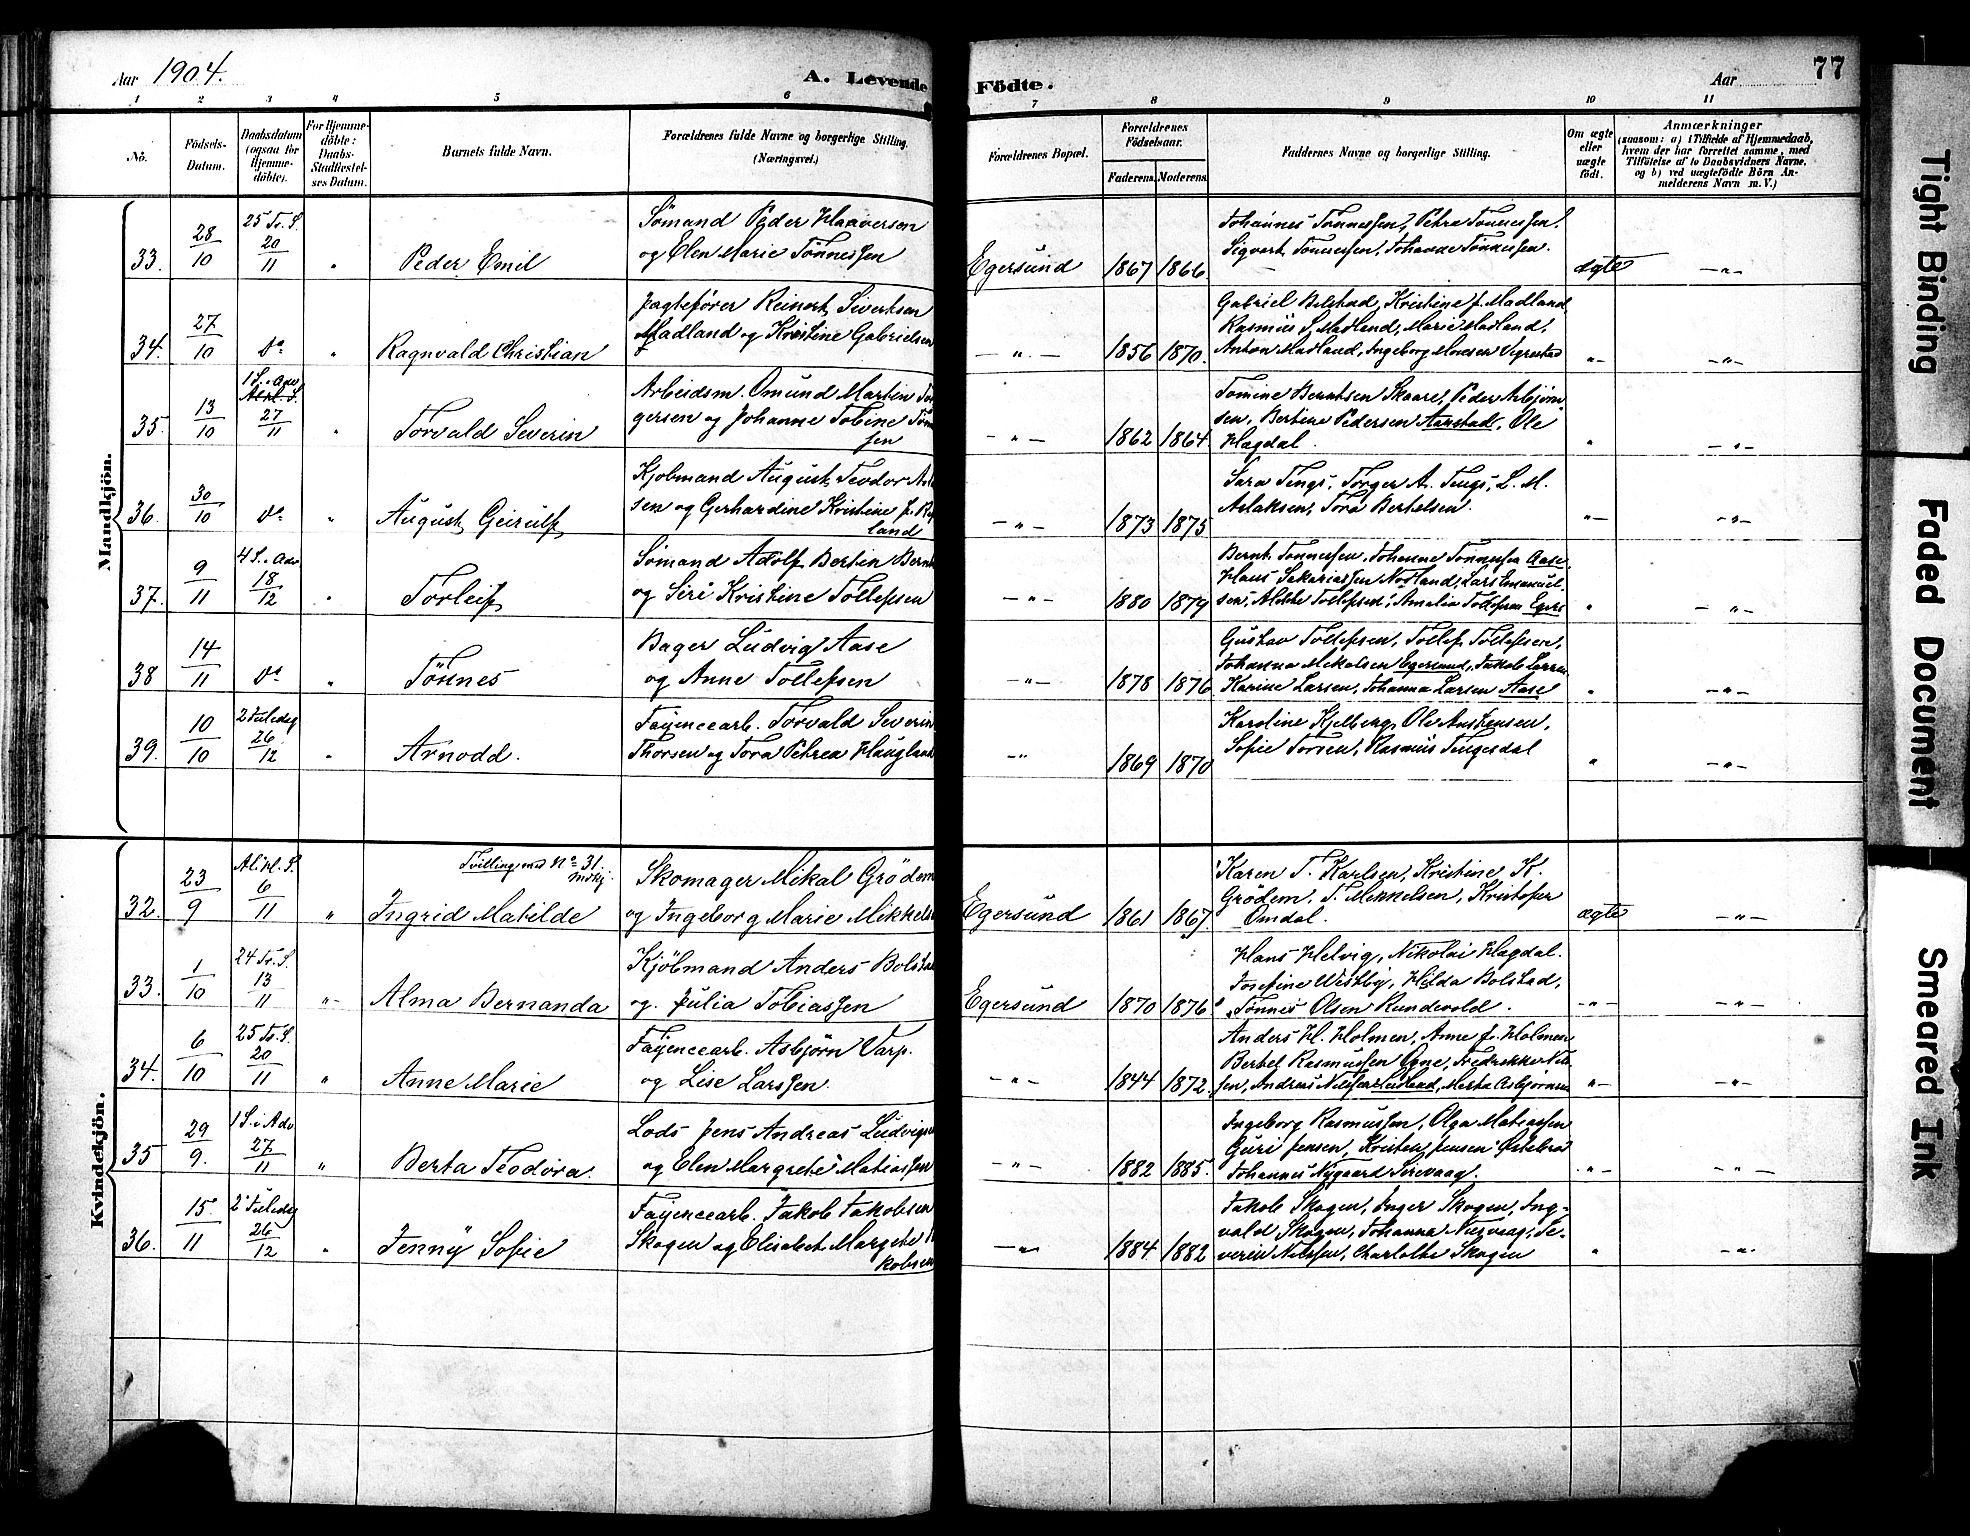 Aar 1904.
A. Levende
Födte.
Aar
77
1 2 3 4 5 6 7 8 9 10 11
No.
Födsels-Datum.
Daabsdatum (ogsaa for Hjemme-döbte).
For Hjemme-döbte: Daabs-Stadfæstel-ses Datum.
Barnets fulde Navn.
Forældrenes fulde Navne og borgerlige Stilling. (Næringsvei.)
Forældrenes Bopæl.
Forældrenes Födselsaar.
Faderens. Moderens.
Faddernes Navne og borgerlige Stilling.
Om ægte eller uægte født.
Anmærkninger
(saasom: a) i Tilfælde af Hjemmedaab, hvem der har forrettet samme, med Tilföielse af to Daabsvidners Navne, og b) ved uægtefödte Börn Anmelderens Navn m. V.)
Mandkjön.
33. 28/10 25 Tr. S. 20/11 " Peder Emil
Sömand Peder Haaversen
og Elen Marie Tönnessen
Egersund 1867 1866
Johannes Tønnessen, Petra Tønnessen,
Sigvart Tønnessen, Johanne Tønnessen.
ægte —"—
34. 27/10 do " Ragnvald Christian
Jagtefører Reinert Sivertsen
Madland og Kristine Gabrielsen
—"— 1856 1870
Gabriel Bilstad, Kristine f. Madland,
Rasmus S. Madland, Marie Madland,
Anton Madland, Ingeborg Vigrestad
"— —"—
35. 13/10 1 S. i Adv. 27/11 " Torvald Severin
Arbeidsm. Omund Martin
gersen og Johanne Tobine
sen
—"— 1862 1864
Tomine Berntsen Skaare, Peder Asbjørn
sen, Bertine Pedersen Aarstad, Ole
Hagdal.
" —"—
36. 30/10 do " August Geirulf
Kjobmand August Teodor
sen og Gerhardine Kristine f.
land
—"— 1873 1875
Sara Tengs, Torger A. Tengs, L. M.
Aslaksen, Tora Bertelsen.
"— —"—
37. 9/11 4 S. i Adv 18/12 " Torleif
Sömand Adolf Bertin
og Siri Kristine Tollefsen
—"— 1880 1879
Bernt Tønnessen, Johanne Tønnessen Aase,
Hans Sakariassen Nodland, Lars Emanuel
sen, Tollefsen, Amalia Tollefsen
" —"—
38 14/11 do " Tönnes
Bager Ludvig Aase
og Anne Tollefsen
—"— 1878 1876
Gustav Tollefsen, Tollef Tollefsen,
Johanna Mikalsen Egersund, Jakob Larsen
Karine Larsen, Johanna Larsen Aase
" —"—
39. 10/10 2 Juledag 26/12 " Arnodd.
Fayencearb. Torvald Severin
Thorsen og Tora Petrea Haugland
—" 1869 1870
Karoline Kjelberg, Ole Austensen,
Sofie Torsen, Rasmus Tengesdal
" —"—
Kvindekjön.
32. 23/9 Al. Hl. S. 6/11 " Tvilling med No 31. Mdkj.
Ingrid Matilde
Skomager Mikal Grödem
og Ingeborg Marie
Egersund 1861 1867
Karen T. Karlsen, Kristine K.
Grödem, T. Mikkelsen, Kristofer
Omdal.
ægte —"—
33. 1/10 24 Tr. S. 13/11 "— Alma Bernanda
Kjöbmand Anders
og. Julia Tobiassen
Egersund 1870 1876
Hans Helvig, Nikolai Hagdal.
Josefine Westby, Hilda Bolstad,
Tønnes Olsen Rundevold.
—"— —"—
34. 6/10 25 Tr. S. 20/11 " Anne Marie
Fayencearb. Asbjörn Varp.
og Lise Larssen.
—"— 1844 1872.
Anders H. Holmen, Anne f. Holmen
Bertel Rasmussen Ogne, Fredrikke Nil
sen, Andreas Nilssen
"— —"—
35 29/9. 1 S. i Adv 27/11 " Berta Teodora.
Lods Jens Andreas
og Elen Margrete Matiassen
—"— 1882 1885.
Ingeborg Rasmussen, Olga Matiassen
Guri Jensen, Kristen Jensen
Johannes Nygaard Sirevaag.
"— —"—
36. 15/11 2 Juledag 26/12 " Jenny Sofie
Fayencearb. Jakob Jakobsen
Skogen og Elisabet Margrete
kobsen
—"— 1884 1882
Jakob Skogen, Inger Skogen, Ing-
vald Skogen, Johanna, Se-
verin Nilssen, Charlotte Skogen
" —"—
Tight Binding
Faded Document
Smeared Ink